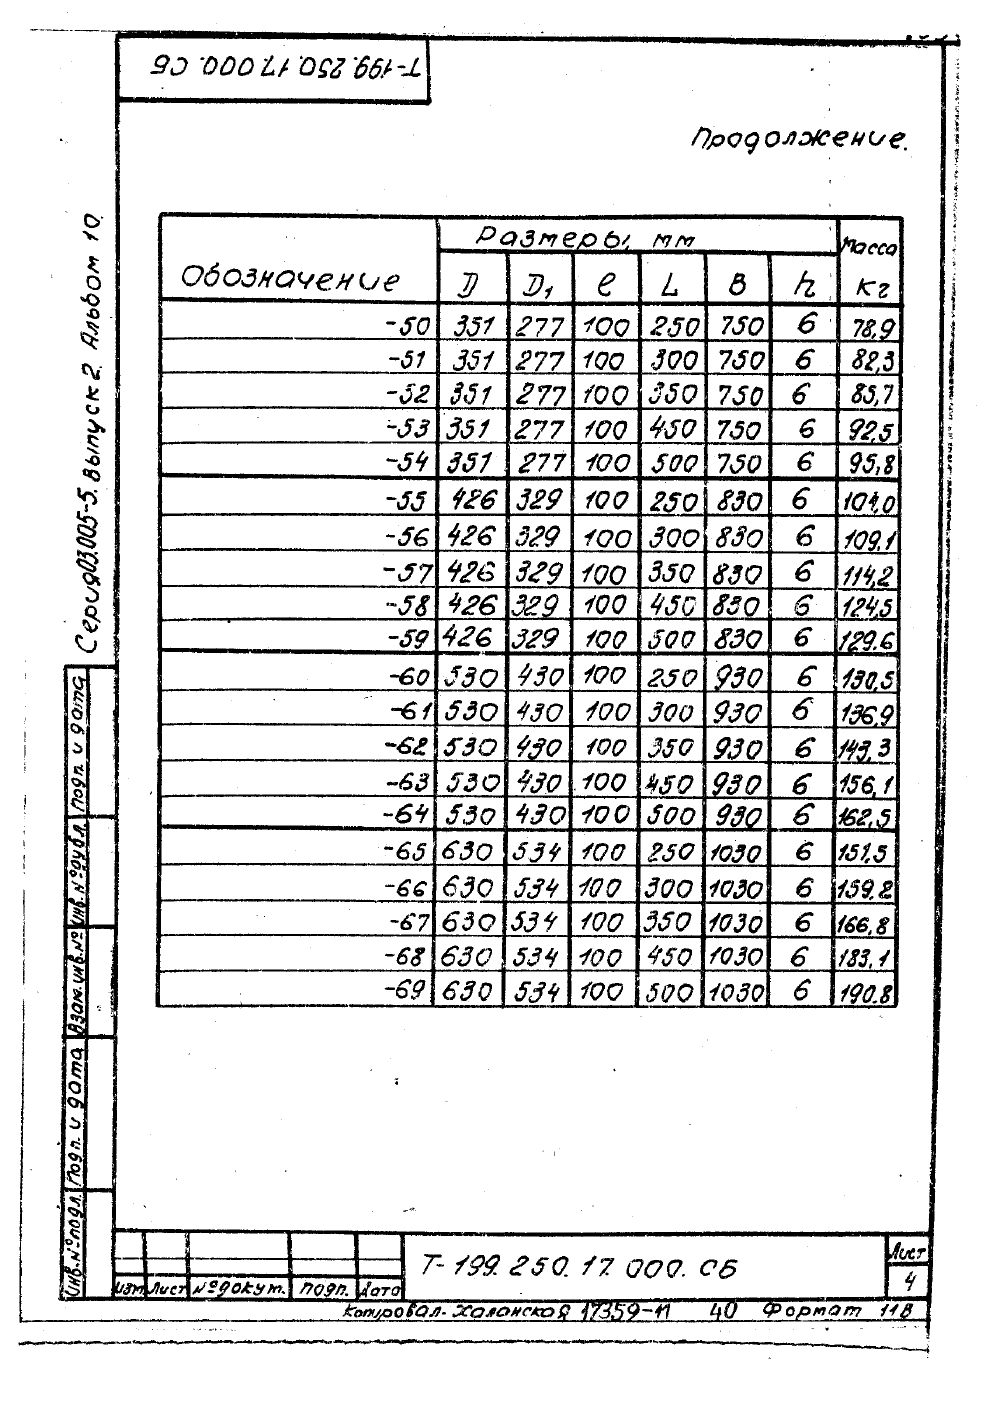 Т-199.250.17.000.СБ
Продолжение.
Серия 03.005-5. Выпуск 2. Альбом 10.
Обозначение Размеры, мм Масса кг
D D1 ℓ L B h
-50 351 277 100 250 750 6 78,9
-51 351 277 100 300 750 6 82,3
-52 351 277 100 350 750 6 85,7
-53 351 277 100 450 750 6 92,5
-54 351 277 100 500 750 6 95,8
-55 426 329 100 250 830 6 104,0
-56 426 329 100 300 830 6 109,1
-57 426 329 100 350 830 6 114,2
-58 426 329 100 450 830 6 124,5
-59 426 329 100 500 830 6 129.6
-60 530 430 100 250 930 6 130,5
-61 530 430 100 300 930 6 136,9
-62 530 430 100 350 930 6 143,3
-63 530 430 100 450 930 6 156,1
-64 530 430 100 500 930 6 162,5
-65 630 534 100 250 1030 6 151,5
-66 630 534 100 300 1030 6 159.2
-67 630 534 100 350 1030 6 166,8
-68 630 534 100 450 1030 6 183,1
-69 630 534 100 500 1030 6 190.8
Подп. и дата
Инв.№ дубл.
Взам.инв.№
Подп. и дата
Инв.№ подл.
Изм Лист № докум. Подп. Дата
Т-199.250.17.000.СБ
Лист
4
Копировал- Халанская 17359-11 40 Формат 11В